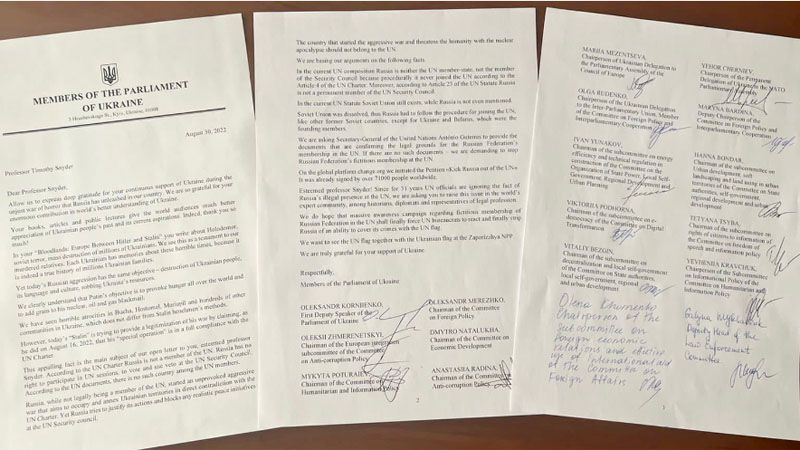 MEMBERS OF THE PARLIAMENT
OF UKRAINE
5 Hrushevskoga St., Kyiv, Ukraine, 01008
August 30, 2022
Professor Timothy Snyder
Dear Professor Snyder,
Allow us to express deep gratitude for your continuous support of Ukraine during the
unjust war of horror that Russia has unleashed in our country. We are so grateful for your
enormous contribution in world's better understanding of Ukraine.
Your books, articles and public lectures give the world audiences much better
appreciation of Ukrainian people's past and its current aspirations. Indeed, thank you so
much!
In your "Bloodlands: Europe Between Hitler and Stalin" you write about Holodomor,
soviet terror, mass destruction of millions of Ukrainians. We see this as a testament to our
murdered relatives. Each Ukrainian has memories about these horrible times, because it
is indeed a true history of millions Ukrainian families.
Yet today's Russian aggression has the same objective – destruction of Ukrainian people,
its language and culture, robbing Ukraine's resources.
We clearly understand that Putin's objective is to provoke hunger all over the world
and to add grain to his nuclear, oil and gas blackmail.
We have seen horrible atrocities in Bucha, Hostomel, Mariupil and hundreds of other
communities in Ukraine, which does not differ from Stalin henchmen's methods.
However, today's "Stalin" is trying to provide a legitimization of his war by claiming, as
he did on August 16, 2022, that his "special operation" is in a full compliance with the
UN Charter.
This appalling fact is the main subject of our open letter to you, esteemed professor
Snyder. According to the UN Charter Russia is not a member of the UN. Russia has no
right to participate in UN sessions, to vote and use veto at the UN Security Council.
According to the UN documents, there is no such country among the UN members.
Russia, while not legally being a member of the UN, started an unprovoked aggressive
war that aims to occupy and annex Ukrainian territories in direct contradiction with the
UN Charter. Yet Russia tries to justify its actions and blocks any realistic peace initiatives
at the UN Security council.
The country that started the aggressive war and threatens the humanity with the nuclear
apocalypse should not belong to the UN.
We are basing our arguments on the following facts.
In the current UN composition Russia is neither the UN member-state, not the member
of the Security Council because procedurally it never joined the UN according to the
Article 4 of the UN Charter. Moreover, according to Article 23 of the UN Statute Russia
is not a permanent member of the UN Security Council.
In the current UN Statute Soviet Union still exists, while Russia is not even mentioned.
Soviet Union was dissolved, thus Russia had to follow the procedure for joining the UN,
like other former Soviet countries, except for Ukraine and Belarus, which were the
founding members.
We are asking Secretary-General of the United Nations António Guterres to provide the
documents that are confirming the legal grounds for the Russian Federation's
membership in the UN. If there are no such documents – we are demanding to stop
Russian Federation's fictitious membership at the UN.
On the global platform change.org we initiated the Petition «Kick Russia out of the UN»
It was already signed by over 71000 people worldwide.
Esteemed professor Snyder! Since for 31 years UN officials are ignoring the fact of
Russia's illegal presence in the UN, we are asking you to raise this issue in the world's
expert community, among historians, diplomats and representatives of legal profession.
We do hope that massive awareness campaign regarding fictitious membership of
Russian Federation in the UN shall finally force UN bureaucrats to react and finally strip
Russia of an ability to covers its crimes with the UN flag.
We want to see the UN flag together with the Ukrainian flag at the Zaporizhzha NPP
We are truly grateful for your support of Ukraine.
Respectfully,
Members of the Parliament of Ukraine
OLEKSANDR KORNIJENKO,
First Deputy Speaker of the
Parliament of Ukraine
OLEKSII ZHMERENETSKYI,
Chairman of the European integration
subcommittee of the Committee
on Anti-corruption Policy
MYKYTA POTURAIEV,
Chairman of the Committee of
Humanitarian and Information Policy
OLEKSANDR MEREZHKO,
Chairman of the Committee on
Foreign Policy
DMYTRO NATALUKHA,
Chairman of the Committee on
Economic Development
ANASTASIA RADINA,
Chairman of the Committee
Anti-corruption Policy
2
MARIIA MEZENTSEVA,
Chairperson of Ukrainian Delegation to
the Parliamentary Assembly of the
Council of Europe
OLGA RUDENKO,
Chairperson of the Ukrainian Delegation
to the Inter-Parliamentary Union, Member
of the Committee on Foreign and
Interparliamentary Cooperation
IVAN YUNAKOV,
Chairman of the subcommittee on energy
efficiency and technical regulation in
construction of the Committee on the
Organization of State Power, Local Self-
Government, Regional Development and
Urban Planning
VIKTORIA PODHORNA,
Chairman of the subcommittee on e-
democracy of the Committee on Digital
Transformation
VITALIY BEZGIN,
Chairman of the subcommittee on
decentralization and local self-government
of the Committee on State authorities,
local self-government, regional
and urban development.
YEHOR CHERNIEV,
Chairperson of the Permanent
Delegation of Ukraine to the NATO
Parliamentary Assembly
MARYNA BARDINA,
Deputy Chairman of the
Committee on Foreign Policy and
Interparliamentary Cooperation
HANNA BONDAR,
Chairman of the subcommittee on
Urban development, soft
landscaping and land using in urban
territories of the Committee on State
authorities, local self-government,
regional development and urban
development
TETYANA TSYBA,
Chairman of the subcommittee on
rights of citizens to information of
the Committee on freedom of
speech and information policy
YEVHENIIA KRAVCHUK,
Chairperson of the Subcommittee
on Informational Policy of the
Committee on Humanitarian and
Information Policy
Olena Khomenko
Chairperson of the
Subcommittee on
Foreign economic
relations and efective
use of international aid
of the Committee on
Foreign Affairs
Deputy Head of the
Law Enforcement
Committee
3